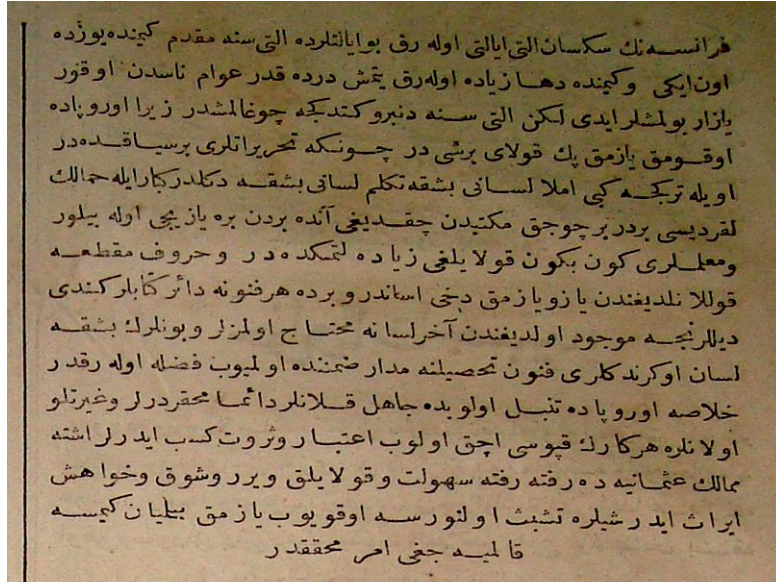 فرانسه‌نك سكسان التى ايالتى اوله رق بو ايالتلرده التى سنه مقدم كيمنده يوزده
اون ايكى وكيمنده دها زياده اوله‌رق يتمش درده قدر عوام ناسدن اوقور
يازار بولمشلر ايدى لكن التى سنه دنبرو كتدكجه چوغالمشدر زيرا اوروپاده
اوقومق يازمق پك قولاى برشى در چونكه تحريراتلرى برسياقده در
اويله تركجه كبى املا لسانى بشقه تكلم لسانى بشقه دكلدر كبار ايله حمالك
لقرديسى بردر برچوجق مكتبدن چقديغى آنده بردن بره يازيجى اوله بيلور
ومعلملرى كون بكون قولايلغى زياده لتمكده در وحروف مقطعه
قوللانلديغندن يازو يازمق دخى اساندر وبرده هرفنونه دائر كتابلر كندى
ديللرنجه موجود اولديغندن آخر لسانه محتاج اولمزلر وبونلرك بشقه
لسان اوكرندكلرى فنون تحصيلنه مدار ضمننده اولميوب فضله اوله رقدر
خلاصه اوروپاده تنبل اولوبده جاهل قلانلر دائما محقردرلر وغيرتلو
اولانلره هركارك قپوسى اچق اولوب اعتبار وثروت كسب ايدرلر اشته
ممالك عثمانيه ده رفته رفته سهولت وقولايلق ويرر وشوق وخواهش
ايراث ايدر شيلره تشبث اولنورسه اوقويوب يازمق بيلميان كيمسه
قالميه جغى امر محققدر